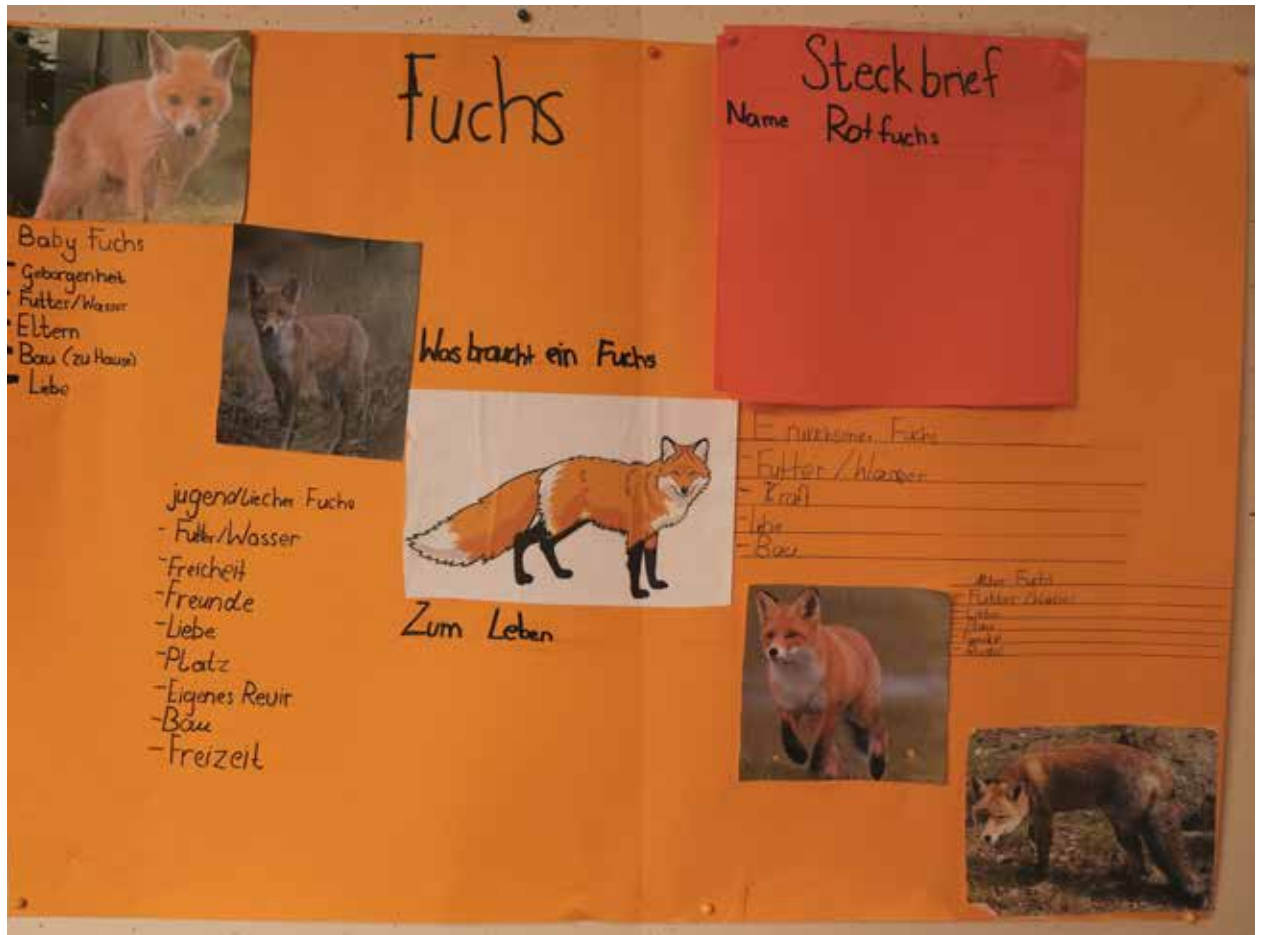 Fuchs
Steckbrief
Name Rotfuchs
Baby Fuchs
- Geborgenheit
- Futter/Wasser
- Eltern
- Bau (zu Hause)
- Liebe
Was braucht ein Fuchs
Zum Leben
jugendliecher Fuchs
- Futter/Wasser
- Freicheit
- Freunde
- Liebe
- Platz
- Eigenes Revir
- Bau
- Freizeit
Fuchs
- Futter/Wasser
- Kraft
- Bau
Fuchs
- Futter/Wasser